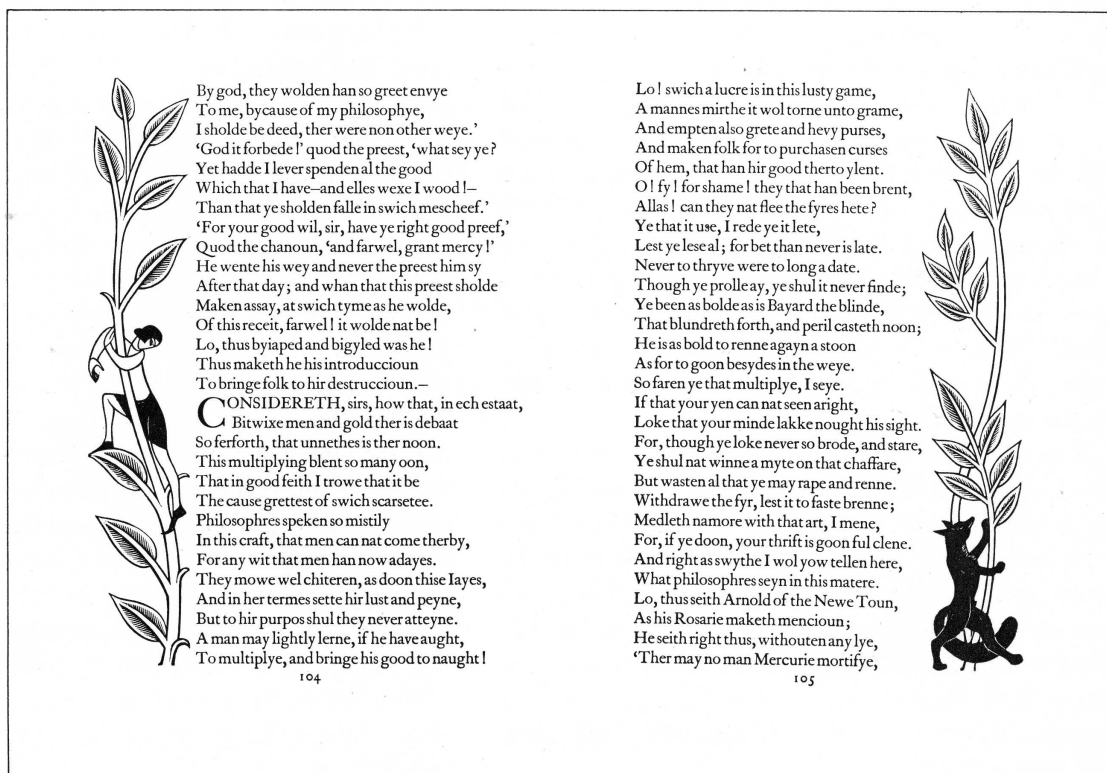 By god, they wolden han so greet envye
To me, bycause of my philosophye,
I sholde be deed, ther were non other weye.’
‘God it forbede!’ quod the preest, ‘what sey ye?
Yet hadde I lever spenden al the good
Which that I have—and elles wexe I wood!—
Than that ye sholden falle in swich mescheef.’
‘For your good wil, sir, have ye right good preef,’
Quod the chanoun, ‘and farwel, grant mercy!’
He wente his wey and never the preest him sy
After that day; and whan that this preest sholde
Maken assay, at swich tyme as he wolde,
Of this receit, farwel! it wolde nat be!
Lo, thus byiaped and bigyled was he!
Thus maketh he his introduccioun
To bringe folk to hir destruccioun.—
CONSIDERETH, sirs, how that, in ech estaat,
Bitwixe men and gold ther is debaat
So ferforth, that unnethes is ther noon.
This multiplying blent so many oon,
That in good feith I trowe that it be
The cause grettest of swich scarsetee.
Philosophres speken so mistily
In this craft, that men can nat come therby,
For any wit that men han now adayes.
They mowe wel chiteren, as doon thise Iayes,
And in her termes sette hir lust and peyne,
But to hir purpos shul they never atteyne.
A man may lightly lerne, if he have aught,
To multiplye, and bringe his good to naught!
104
Lo! swich a lucre is in this lusty game,
A mannes mirthe it wol torne unto grame,
And empten also grete and hevy purses,
And maken folk for to purchasen curses
Of hem, that han hir good therto ylent.
O! fy! for shame! they that han been brent,
Allas! can they nat flee the fyres hete?
Ye that it use, I rede ye it lete,
Lest ye lese al; for bet than never is late.
Never to thryve were to long a date.
Though ye prolle ay, ye shul it never finde;
Ye been as bolde as is Bayard the blinde,
That blundreth forth, and peril casteth noon;
He is as bold to renne agayn a stoon
As for to goon besydes in the weye.
So faren ye that multiplye, I seye.
If that your yen can nat seen aright,
Loke that your minde lakke nought his sight.
For, though ye loke never so brode, and stare,
Ye shul nat winne a myte on that chaffare,
But wasten al that ye may rape and renne.
Withdrawe the fyr, lest it to faste brenne;
Medleth namore with that art, I mene,
For, if ye doon, your thrift is goon ful clene.
And right as swythe I wol yow tellen here,
What philosophres seyn in this matere.
Lo, thus seith Arnold of the Newe Toun,
As his Rosarie maketh mencioun;
He seith right thus, withouten any lye,
‘Ther may no man Mercurie mortifye,
105